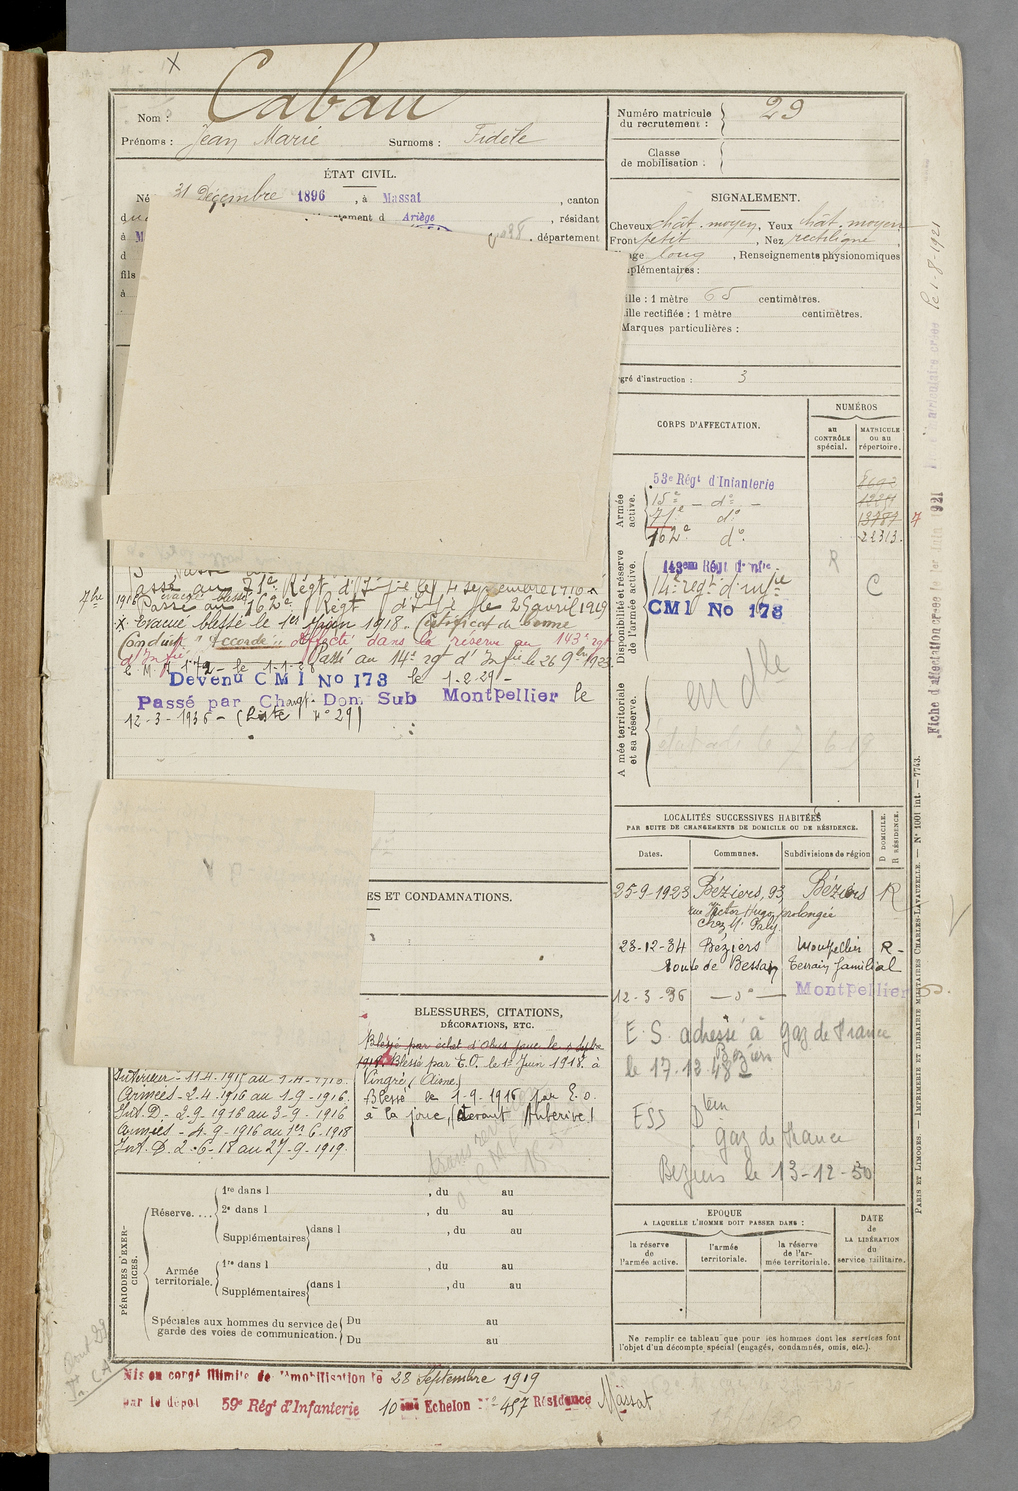 X
Nom : Cabau
Prénoms : Jean Marie Surnoms : Fidèle
Numéro matricule du recrutement : 29
Classe de mobilisation :
ÉTAT CIVIL.
Né 31 Décembre 1896, à Massat, canton
département d Ariège, résidant
à M , département
d
fils
à
SIGNALEMENT.
Cheveux chât. moyen, Yeux chât. moyen
Front petit, Nez rectiligne,
Visage long, Renseignements physionomiques
complémentaires :
Taille : 1 mètre 65 centimètres.
Taille rectifiée : 1 mètre centimètres.
Marques particulières :
Degré d'instruction : 3
CORPS D'AFFECTATION.
NUMÉROS
au CONTRÔLE spécial.
MATRICULE ou au répertoire.
Armée active.
53e Régt d'Infanterie
15e - do -
71e do
162e do 21313
Disponibilité et réserve de l'armée active.
143em Régt d'Infie
14e régt d'infie
CMI No 173
R
C
Armée territoriale et sa réserve.
en dle
passé au 71e Régt d'Infie le 4 septembre 1916 x
7bre 1916 évacué blessé
Passé au 162e Régt d'Infie le 25 avril 1919
x Evacué blessé le 1er Juin 1918. Certificat de bonne
Conduite "Accordé". Affecté dans la réserve au 143e rgt
d'Infie Passé au 14e rgt d'Infie le 26 9bre 1923
Devenu CMI No 173 le 1-8-29-
Passé par Changt. Dom Sub Montpellier le
12-3-1936 - (Liste No 29)
LOCALITÉS SUCCESSIVES HABITÉES
PAR SUITE DE CHANGEMENTS DE DOMICILE OU DE RÉSIDENCE.
Dates. Communes. Subdivisions de région
D DOMICILE.
R RÉSIDENCE.
25-9-1923 Béziers, 93, Béziers R
rue Victor Hugo prolongée
chez Mr Paly
28-12-34 Béziers Montpellier R-
route de Bessan Terrain familial
12-3-36 - do - Montpellier D.
E.S. adressé à gaz de France
Béziers
le 17.12.48
ESS Dtem
gaz de France
Beziers le 13-12-50
ES ET CONDAMNATIONS.
BLESSURES, CITATIONS,
DÉCORATIONS, ETC.
Blessé par éclat d'obus joue le 2 7bre
1916. Blessé par E.O. le 1er Juin 1918. à
Vingré (Aisne)
Blessé le 1-9-1916 par E.O.
à la joue, (devant Auberive)
Intérieur - 11.4.1915 au 1.4.1916.
Armées - 2.4.1916 au 1-9-1916.
Int. D - 2.9.1916 au 3-9-1916
Armées - 4.9.1916 au 1er 6-1918
Int. D. 2.6-18 au 27-9-1919.
PÉRIODES D'EXERCICES.
Réserve....
1re dans l , du au
2e dans l , du au
Supplémentaires dans l , du au
Armée territoriale.
1re dans l , du au
Supplémentaires dans l , du au
Spéciales aux hommes du service de garde des voies de communication.
Du au
Du au
ÉPOQUE
A LAQUELLE L'HOMME DOIT PASSER DANS :
la réserve de l'armée active.
l'armée territoriale.
la réserve de l'armée territoriale.
DATE de LA LIBÉRATION du service militaire.
Ne remplir ce tableau que pour les hommes dont les services font
l'objet d'un décompte spécial (engagés, condamnés, omis, etc.).
Mis en congé illimité de démobilisation le 28 Septembre 1919
par le dépôt 59e Régt d'Infanterie 10eme Echelon No 457 Résidence Massat
PARIS ET LIMOGES. — IMPRIMERIE ET LIBRAIRIE MILITAIRES CHARLES-LAVAUZELLE. — No 1001 int. — 7743.
Fiche d'affectation créée le 1er Juin 1921
matriculaire créée le 1-8-1921